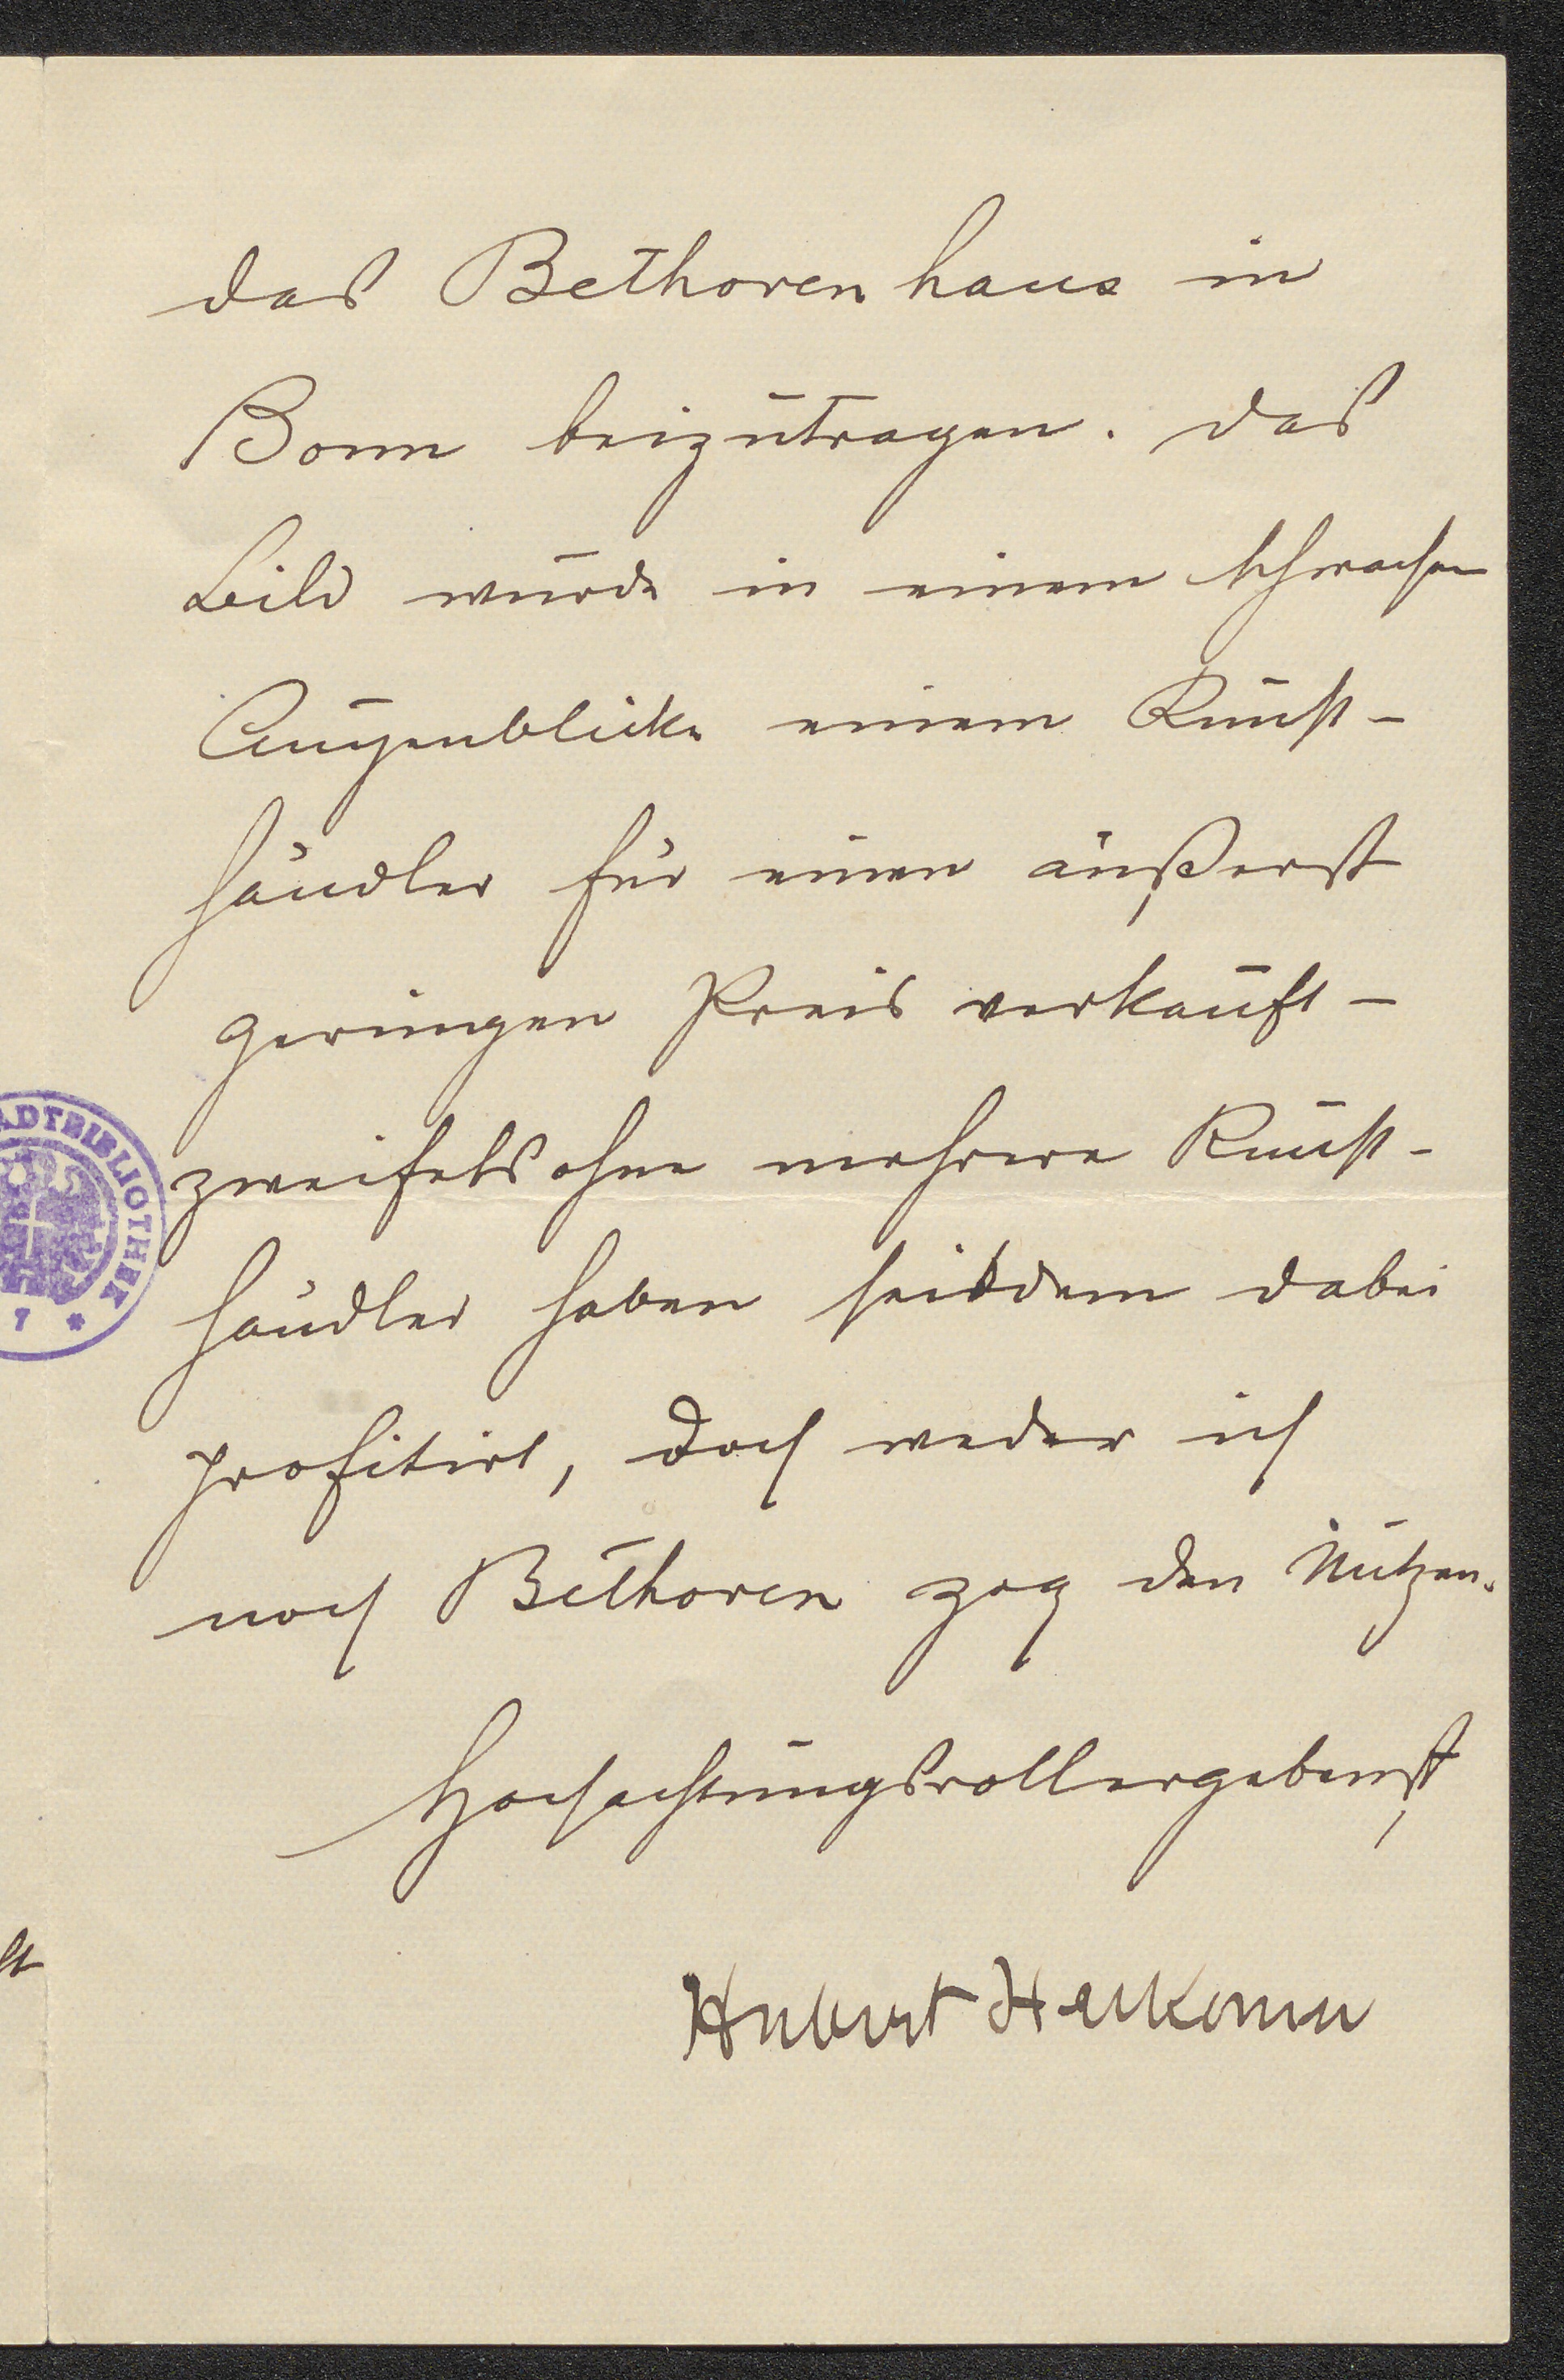 das Bethovenhaus in
Bonn beizutragen. Das
Bild wurde in einem schwachen
Augenblicke einem Kunst-
händler für einen äußerst
geringen Preis verkauft –
zweifelsohne mehrere Kunst-
händler haben seitdem dabei
profitirt, doch weder ich
noch Bethoven zog den Nutzen.
Hochachtungsvollergebenst
Hubert Herkomer
ADTBIBLIOTHEK
7 *